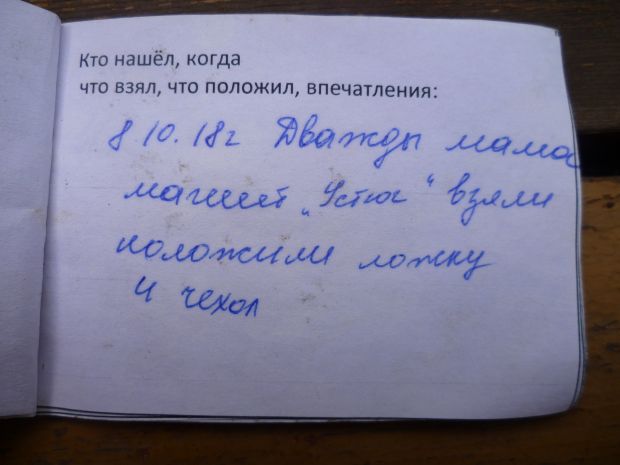 Кто нашёл, когда
что взял, что положил, впечатления:
8 10. 18г Дважды мама
магнит „Устюг“ взяли
положили ложку
и чехол